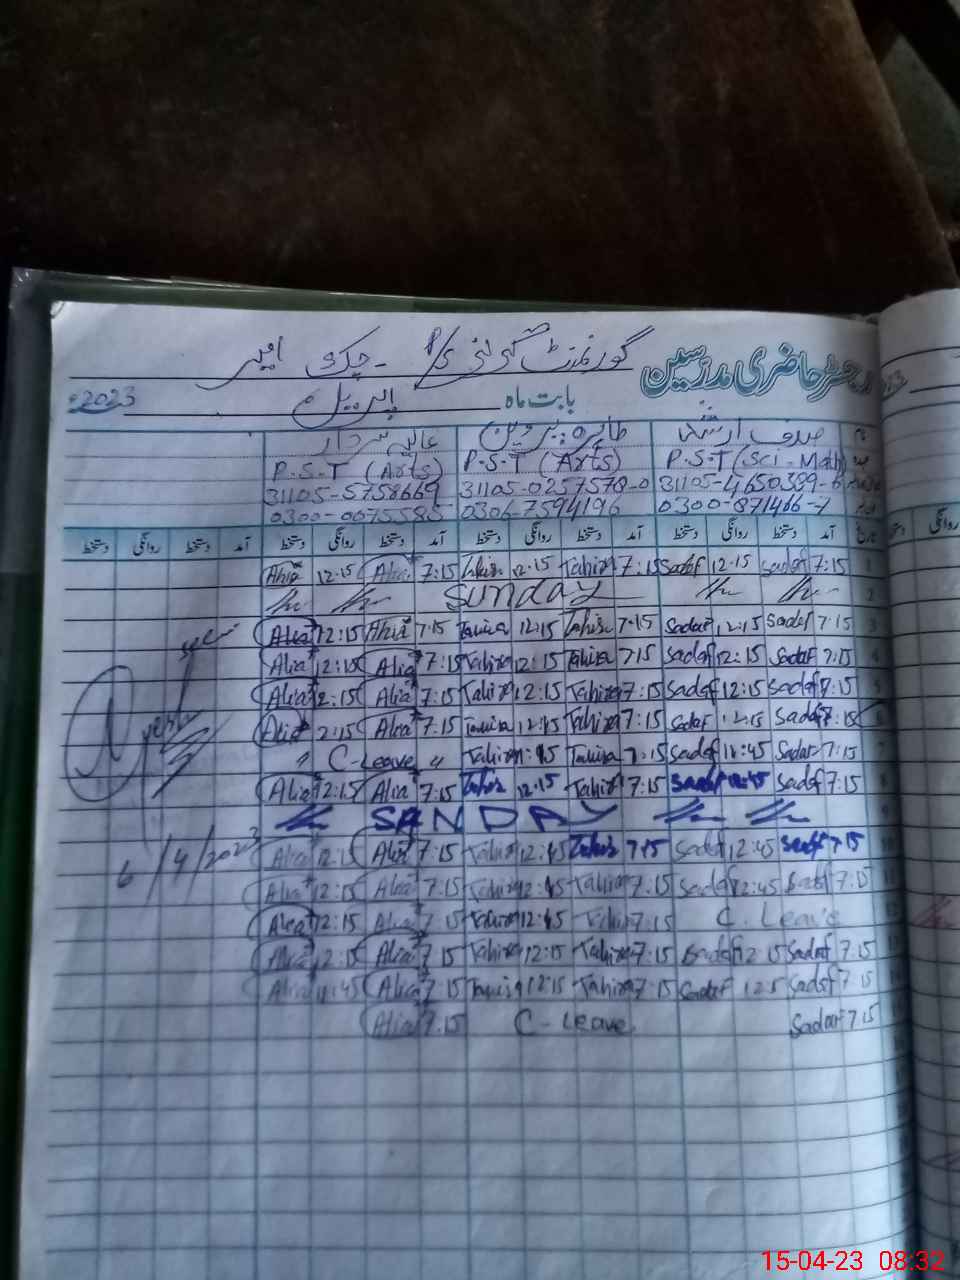 رجسٹر حاضری مدرسین گورنمنٹ گرلز P/S - چک امیر
بابت ماہ اپریل 2023ء
نام صدف ارشد طاہرہ پروین عالیہ سردار
P.S.T (Sci-Math) P.S.T (Arts) P.S.T (Arts)
31105-4650389-6 31105-0257578-0 31105-5758669
0300-871466-7 0306-7594196 0300-0075585
تاریخ آمد دستخط روانگی دستخط آمد دستخط روانگی دستخط آمد دستخط روانگی دستخط آمد دستخط روانگی دستخط
1 7:15 Sadaf 12:15 Sadaf 7:15 Tahira 12:15 Tahira 7:15 Alia 12:15 Alia
2 Sunday
3 7:15 Sadaf 12:15 Sadaf 7:15 Tahira 12:15 Tahira 7:15 Alia 12:15 Alia
4 7:15 Sadaf 12:15 Sadaf 7:15 Tahira 12:15 Tahira 7:15 Alia 12:15 Alia
5 7:15 Sadaf 12:15 Sadaf 7:15 Tahira 12:15 Tahira 7:15 Alia 12:15 Alia
6 7:15 Sadaf 12:15 Sadaf 7:15 Tahira 12:45 Tahira 7:15 Alia 12:15 Alia
7 7:15 Sadaf 12:45 Sadaf 7:15 Tahira Tahira " C-Leave "
8 7:15 Sadaf 12:45 Sadaf 7:15 Tahira 12:15 Tahira 7:15 Alia 12:15 Alia
9 SANDAY
10 7:15 Sadaf 12:45 Sadaf 7:15 Tahira 12:45 Tahira 7:15 Alia 12:15 Alia
6/4/2023
11 7:15 Sadaf 12:45 Sadaf 7:15 Tahira 12:45 Tahira 7:15 Alia 12:15 Alia
12 C. Leave 7:15 Tahira 12:45 Tahira 7:15 Alia 12:15 Alia
7:15 Sadaf 12:15 Sadaf 7:15 Tahira 12:15 Tahira 7:15 Alia 12:15 Alia
7:15 Sadaf Sadaf 7:15 Tahira 12:15 Tahira 7:15 Alia 11:45 Alia
7:15 Sadaf C-Leave 7:15 Alia
15-04-23 08:32